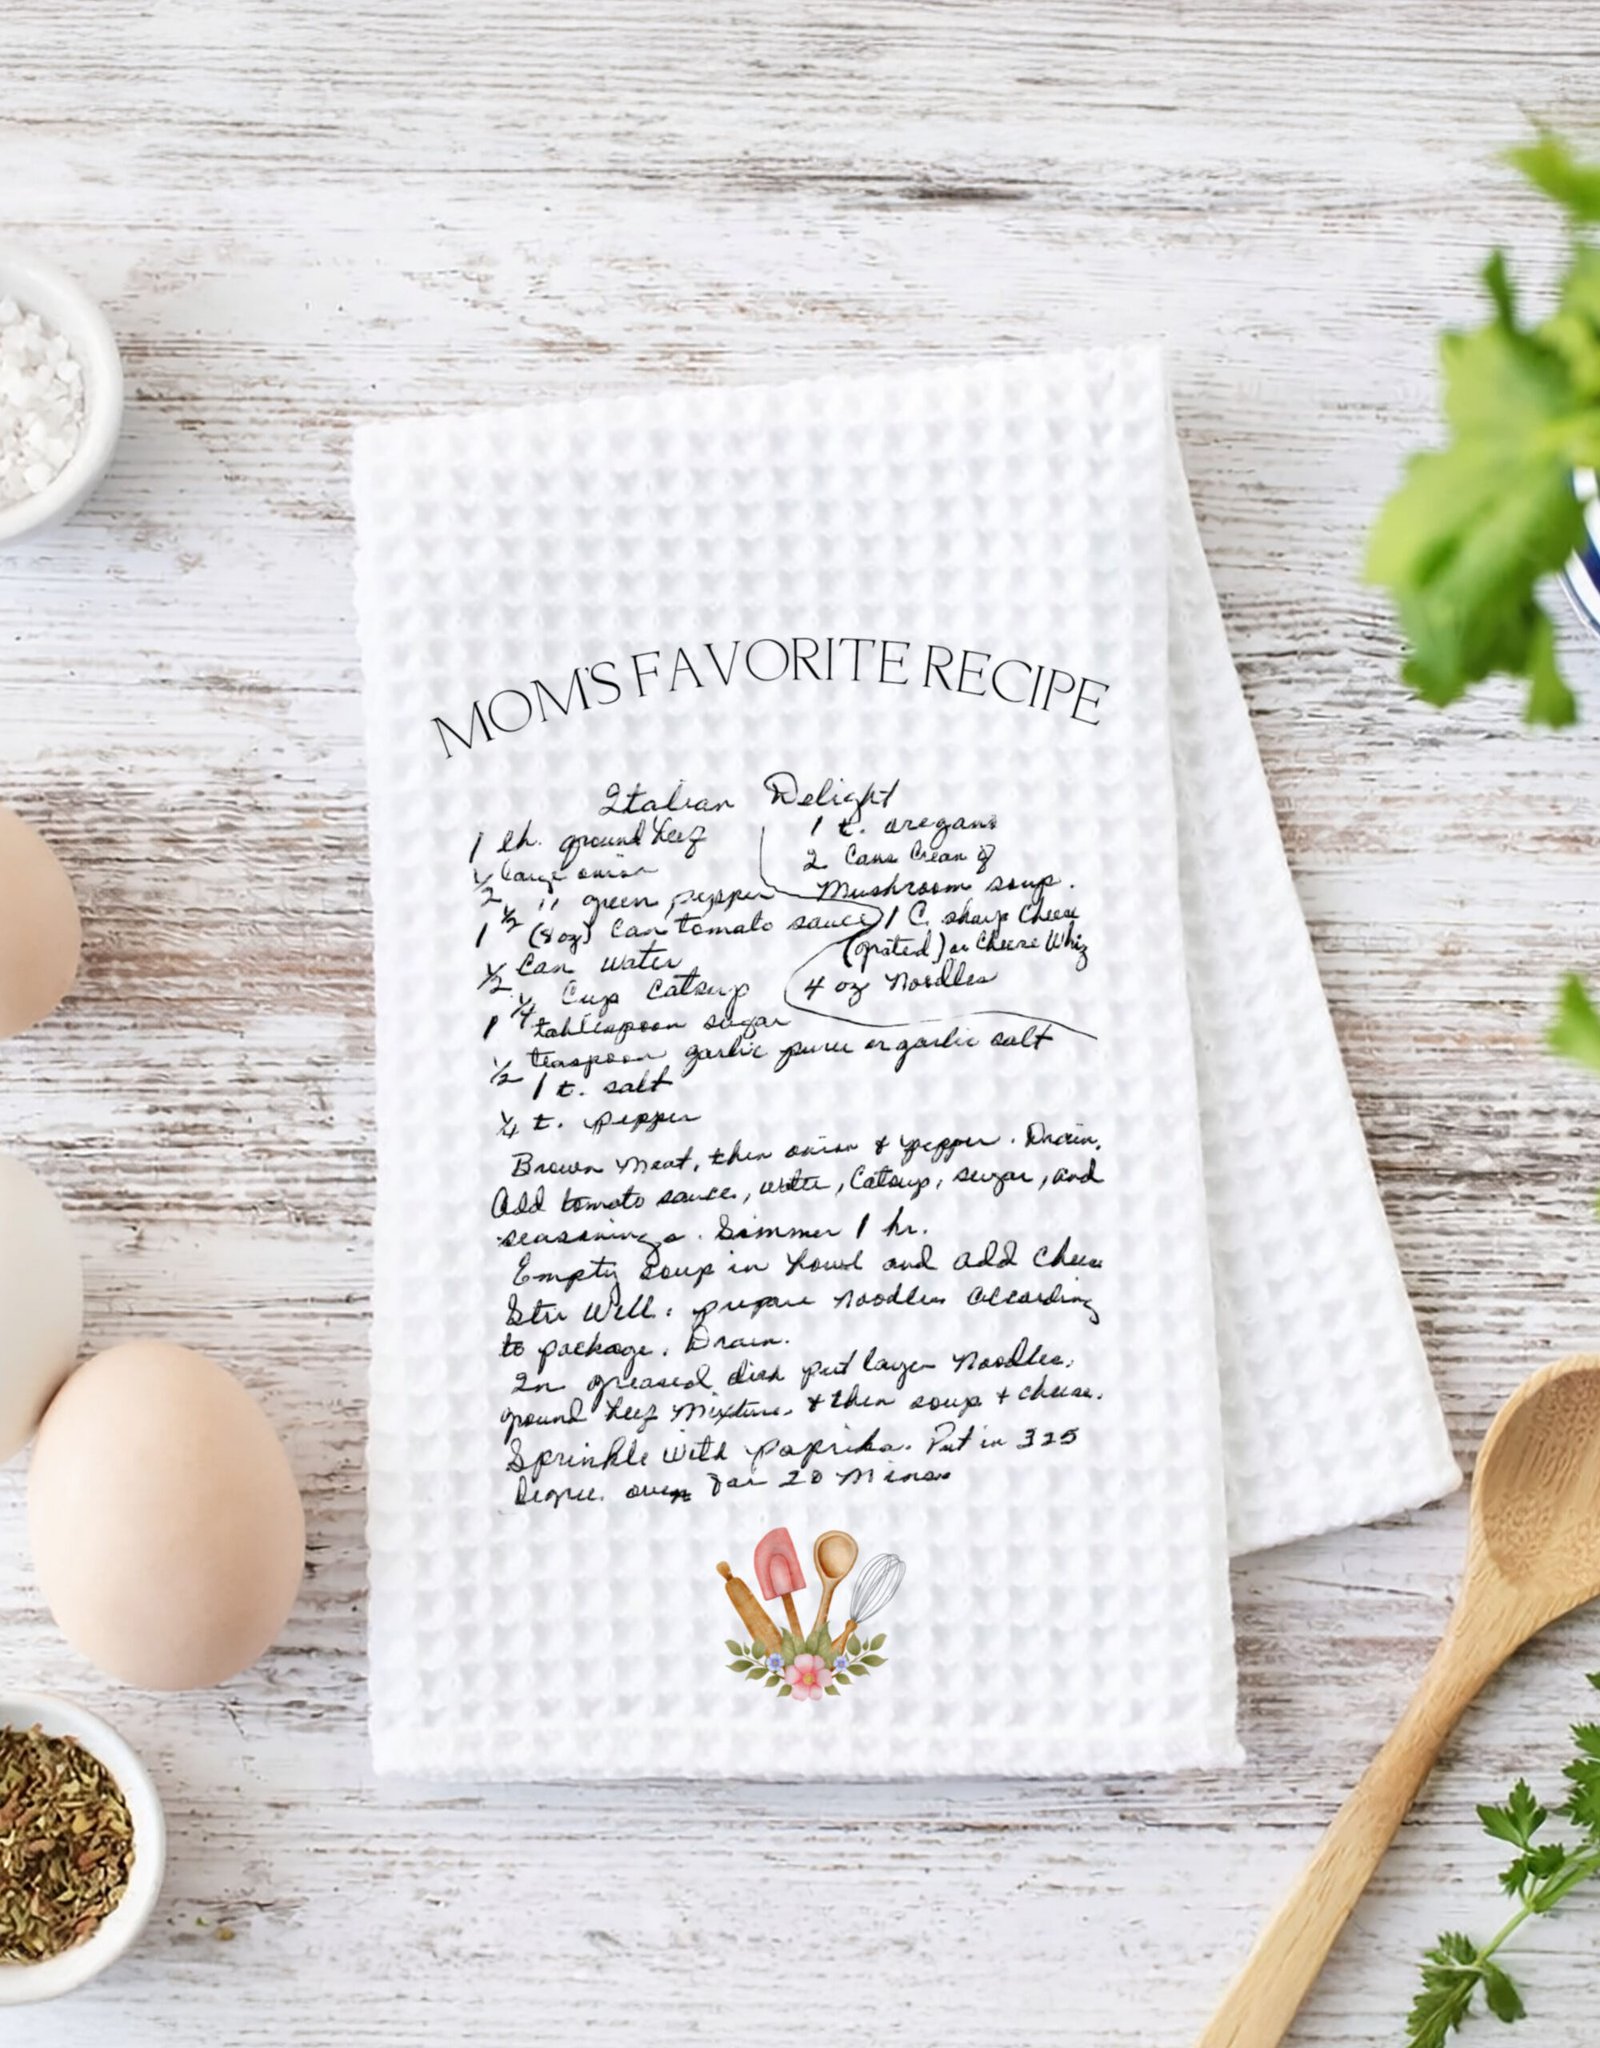 MOM'S FAVORITE RECIPE
Italian Delight
1 lb. ground beef
1/2 large onion
1/2 " green pepper
1 1/2 (8 oz) Can tomato sauce
1/2 Can water
1/4 Cup Catsup
1 tablespoon sugar
1/2 teaspoon garlic puree or garlic salt
1 t. salt
1/4 t. pepper
1 t. oregano
2 Cans Cream of
Mushroom soup.
1 C. sharp Cheese
(grated) or Cheese Whiz
4 oz Noodles
Brown Meat, then onion & pepper. Drain.
Add tomato sauce, water, Catsup, sugar, and
seasonings. Simmer 1 hr.
Empty soup in bowl and add Cheese
Stir Well. prepare Noodles according
to package. Drain.
In greased dish put layer Noodles,
ground beef Mixture, & then soup & cheese.
Sprinkle With paprika. Put in 325
Degree oven for 20 Mins.